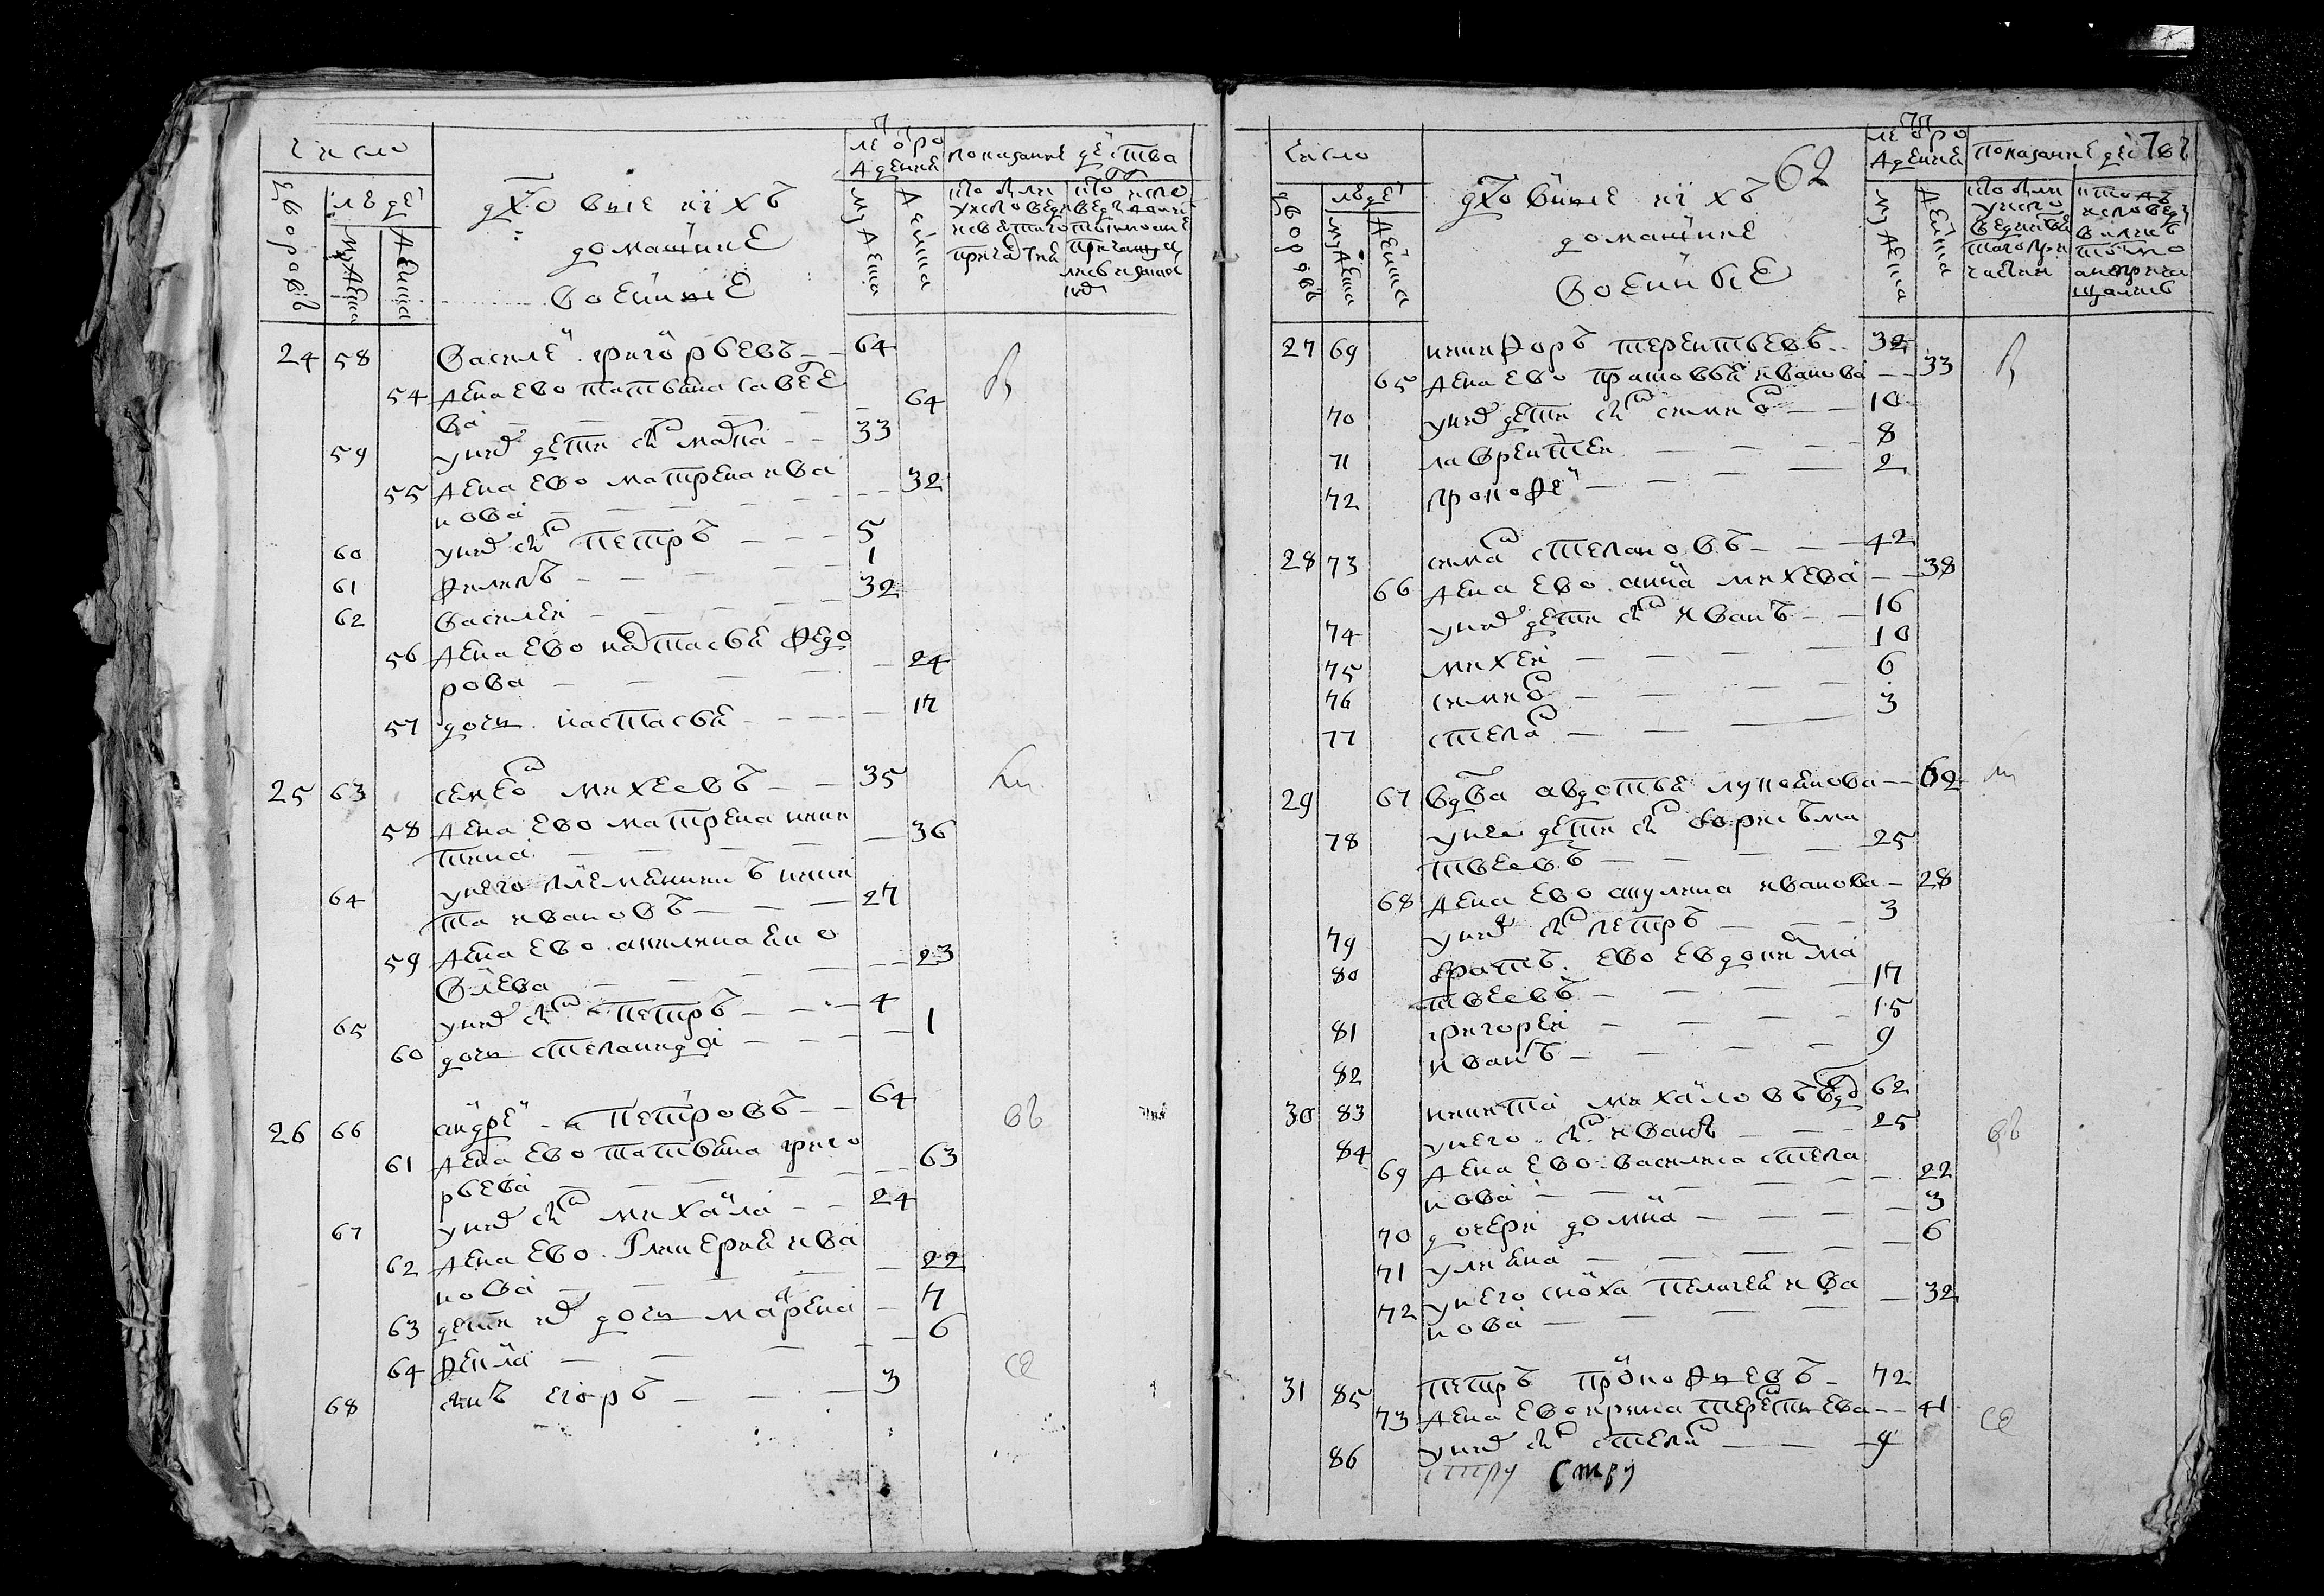 число
лѣ ѿ ро
жденнѣ
показание действа
дворовъ
людеї
мужеска
женска
дховные и ихъ
домашние
военные
мужеска
женска
24 58 Василеї григорьевъ 64
54 жена ево татьяна савелье
ва 64
59 у нихъ дети снъ матвѣ 33
55 жена ево матрена ива
нова 32
60 у нихъ снъ петръ 5
61 филипъ 1
62 василеи 32
56 жена ево настасья федо
рова 24
57 дочь настасья 17
25 63 семенъ михеевъ 35
58 жена ево матрена ники
тина 36
64 у него племянникъ ники
та ивановъ 27
59 жена ево акилина яко
влева 23
65 у нихъ снъ петръ 4
60 дочь степанида 1
26 66 андреї петровъ 64
61 жена ево татьяна григо
рьева 63
67 у нихъ снъ михаила 24
62 жена ево гликерия ива
нова 22
63 дети их дочь марфена 7
64 фекла 6
68 снъ егоръ 3
число
лѣ ѿ ро
жденнѣ
показание действ
62
дворовъ
людеї
мужеска
женска
дховные и ихъ
домашние
военные
мужеска
женска
27 69 никифоръ терентьевъ 32
65 жена ево прасковья иванова 33
70 у нихъ дети снъ симион 10
71 лаврентеи 8
72 прокофеї 2
28 73 симан степановъ 42
66 жена ево анна михева 38
74 у нихъ дети снъ иванъ 16
75 михеи 10
76 симион 6
77 степан 3
29 67 вдва авдотья лукоянова 62
78 у нея дети снъ борисъ ма
твеевъ 25
68 жена ево акулина иванова 28
79 у нихъ снъ петръ 3
80 братъ ево евдоким ма
твеевъ 17
81 григореи 15
82 иванъ 9
30 83 никита михаиловъ вдв 62
84 у него снъ иванъ 25
69 жена ево василиса степа
нова 22
70 дочери домна 3
71 улияна 6
72 у него сноха пелагея ива
нова 32
31 85 петръ прокофьевъ 72
73 жена ево ирина терентьева 41
86 у нихъ снъ степан 9